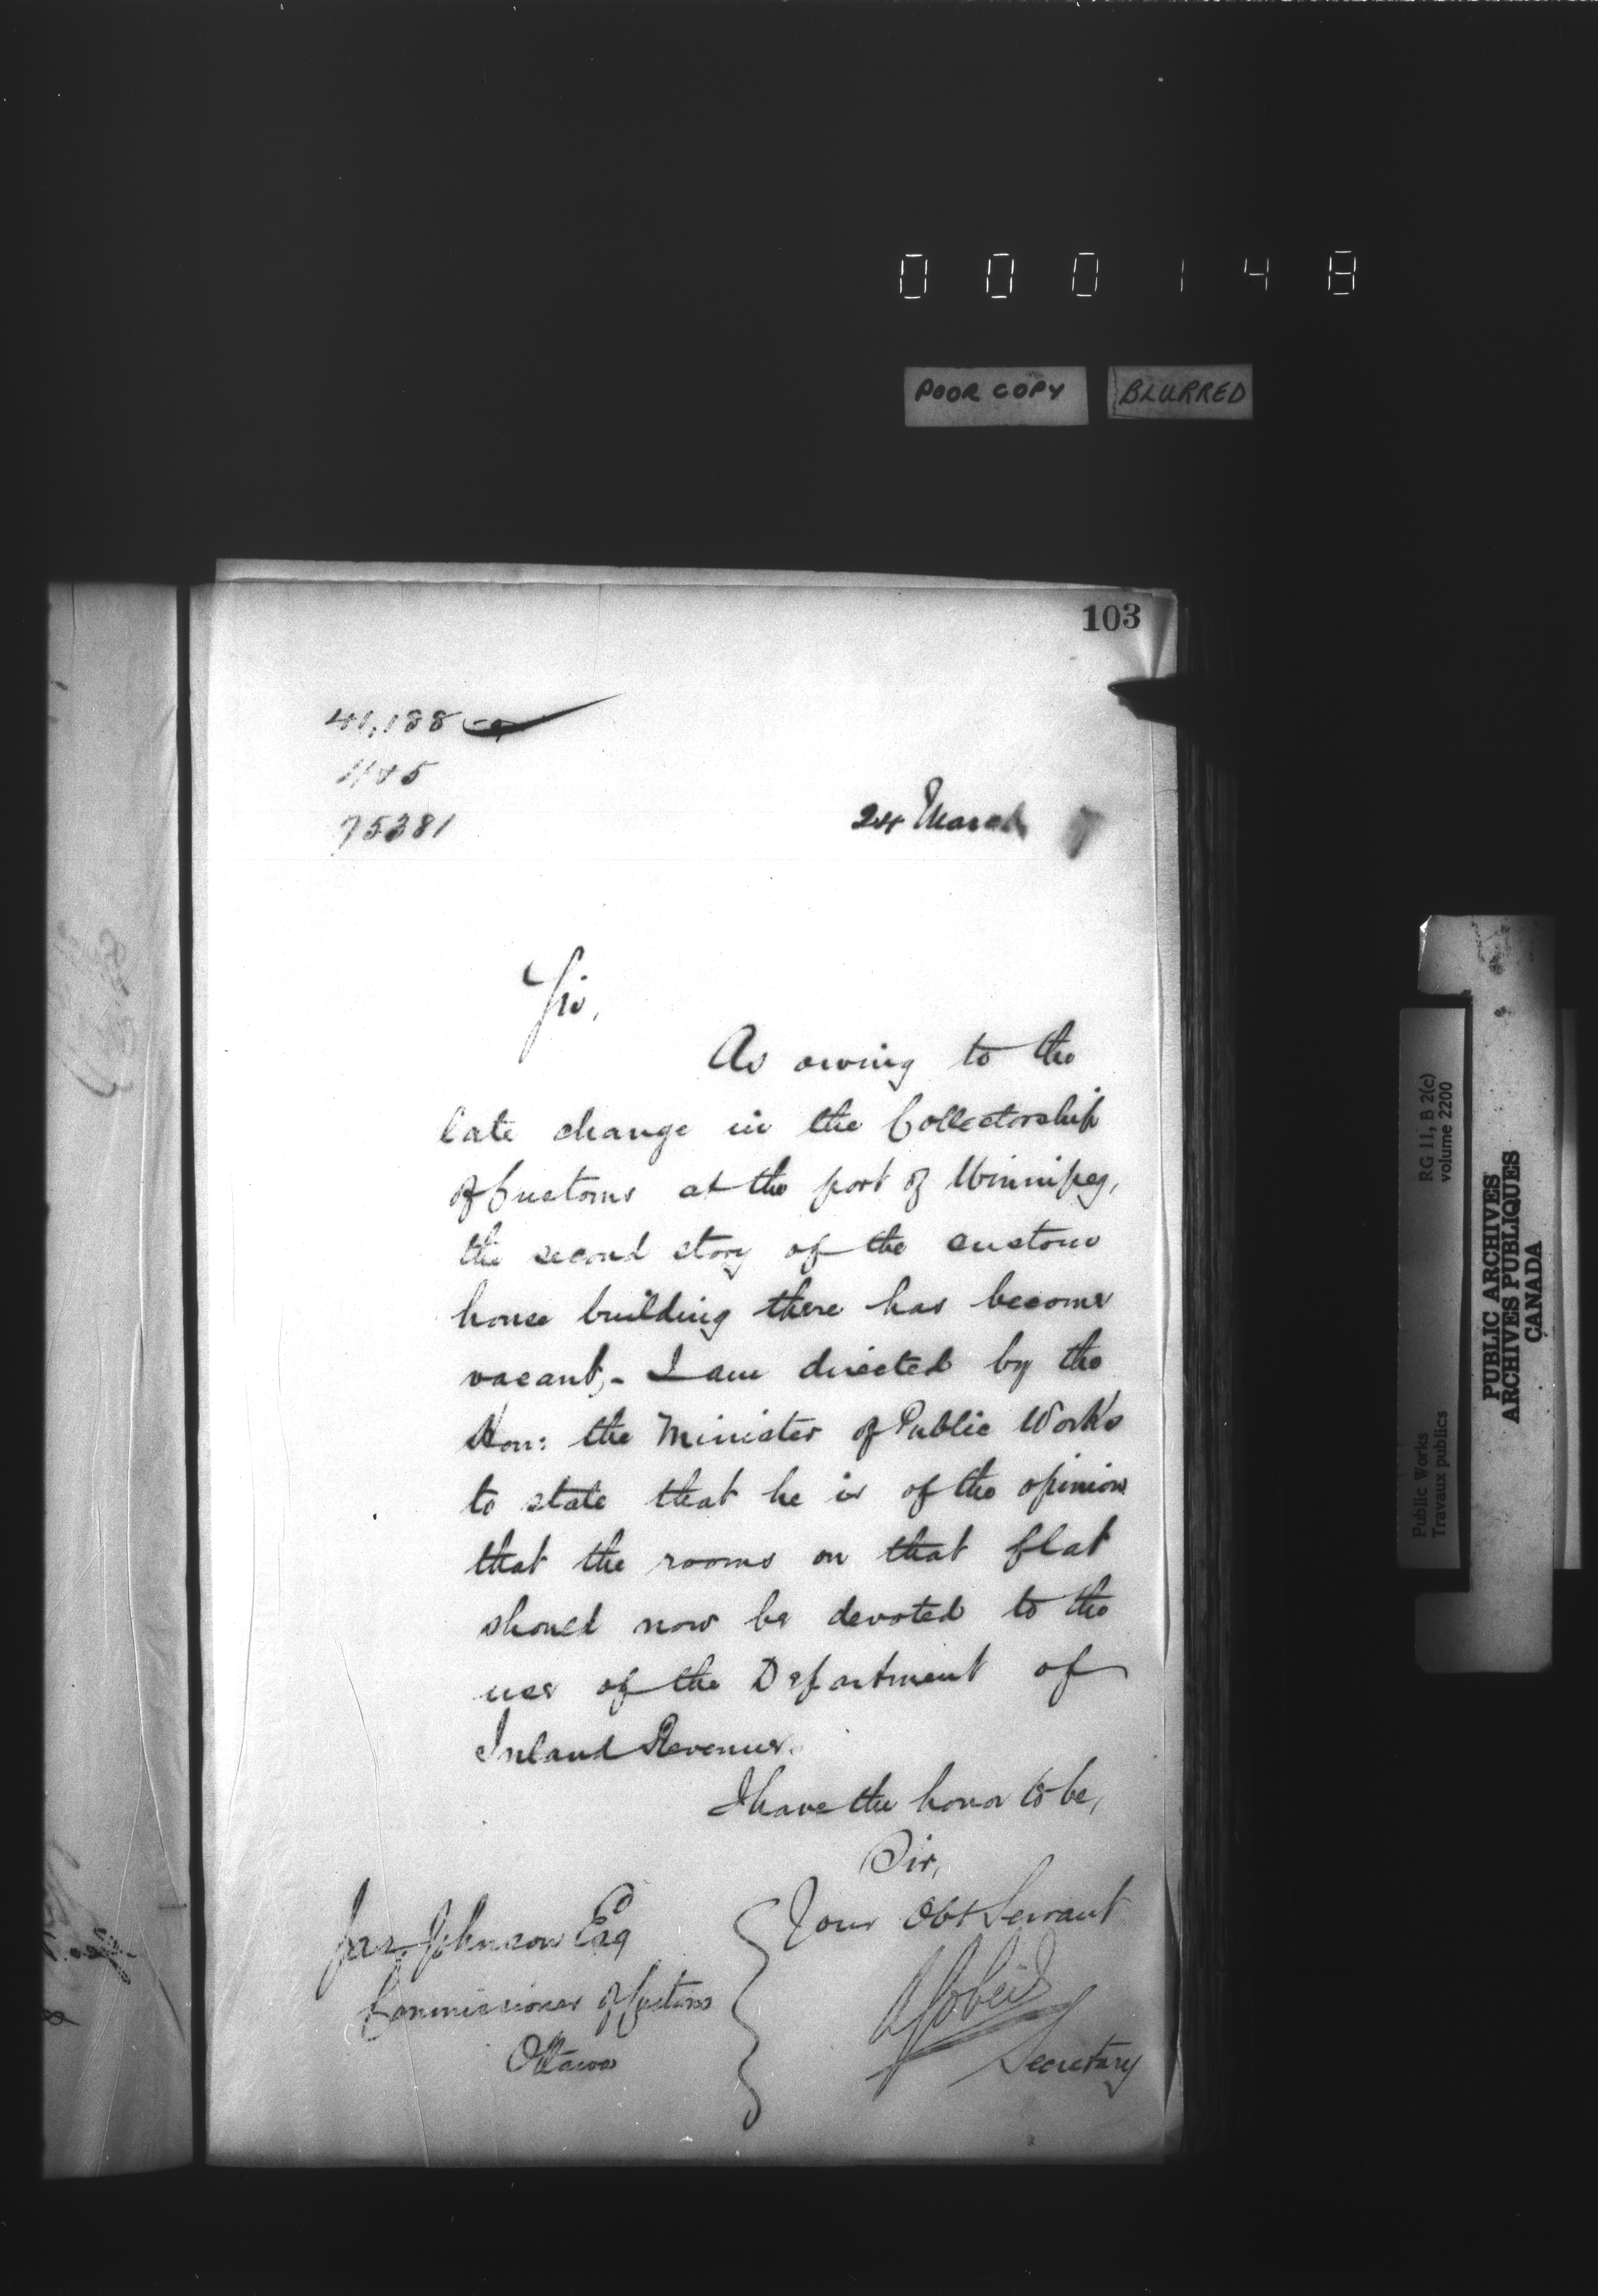 000148
POOR COPY BLURRED
103
41,188
1185
75381
24 March 7
Sir,
As owing to the
late change in the Collectorship
of Customs at the port of Winnipeg,
the second story of the custom
house building there has become
vacant,- I am directed by the
Hon: the Minister of Public Works
to state that he is of the opinion
that the rooms on that flat
should now be devoted to the
use of the Department of
Inland Revenue.
I have the honor to be,
Sir,
Your Obt Servant
Secretary
Jas. Johnson Esq
Commissioner of Customs
Ottawa
RG 11, B 2(c)
volume 2200
Public Works
Travaux publics
PUBLIC ARCHIVES
ARCHIVES PUBLIQUES
CANADA